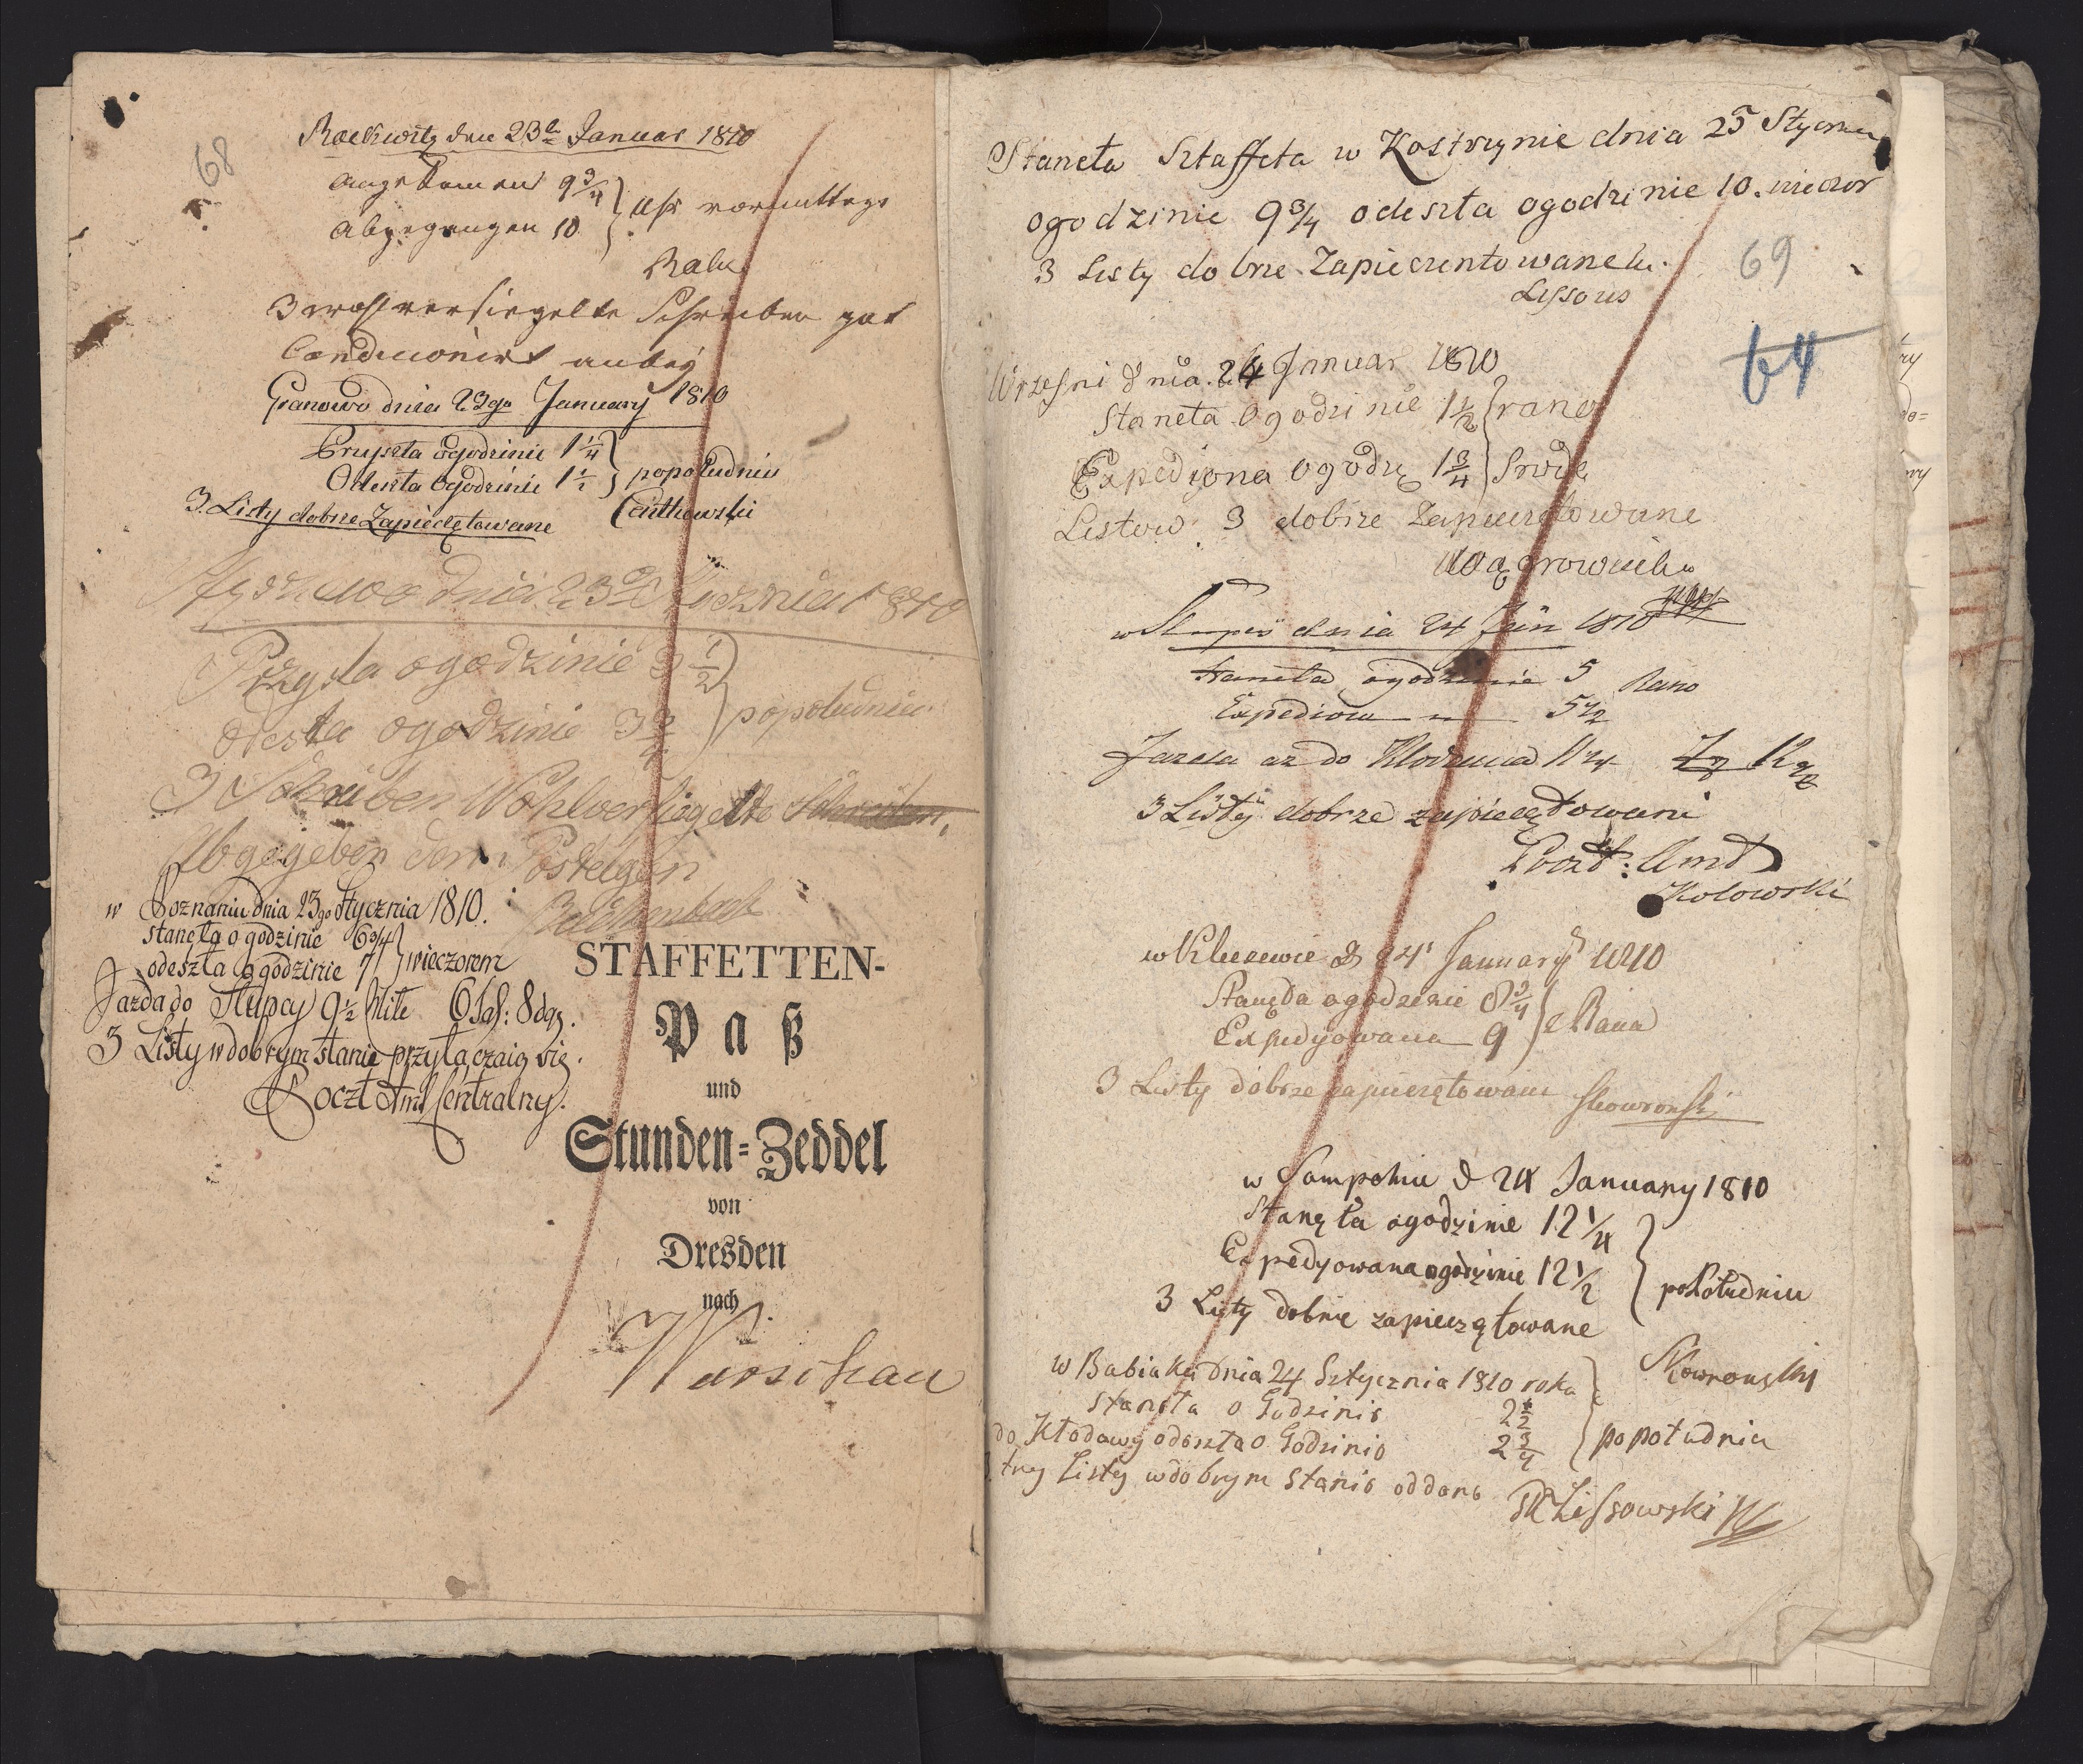 68
Rackwitz den 23t Januar 1810
angekommen 9 3/4
abgegangen 10
Uhr vormittags
3 wohlversiegelte Schreiben gut
Conditionirt anbey
Granowo dnia 23go January 1810
Przyszła ogodzinie 1 1/4
Odeszła ogodzinie 1 1/2
popołudniu
3. Listy dobrze Zapieczętowane
dnia 23go Stycznia 1810
Przysła ogodzinie 3 1/2
Odesła ogodzinie 3 3/4
popołudniu
3 Schreiben Wohlversiegellte Schreiben,
Abgegeben dem
w Poznaniu dnia 23go Stycznia 1810.
stanęła o godzinie 6 3/4
odeszła o godzinie 7
wieczorem
Jazda do Słupcy 9 1/2 Mile 6 Saf: 8 dgr.
3 Listy w dobrym stanie przyłączaią się.
Poczt Amt Centralny.
STAFFETTEN-
Paß
und
Stunden-Zeddel
von
Dresden
nach
Warschau
Staneła Sztaffeta w Kostrzynie dnia 25 Styczniu
ogodzinie 9 3/4 odeszła ogodzinie 10. wieczor
3 Listy dobrze Zapieczentowaneh.
69
64
Wrzesni dnia 24 Januar 1810
Staneta Ogodzinie 1 1/2
rano
Expediona ogodz 1 3/4
Srode
Listow 3 dobrze Zapieczętowane
w Słupcu dnia 24 Jan 1810
staneła ogodzinie 5 Rano
Expediowa 5 1/2
3 Listy dobrze zapieczętowani
Poczt: Amt
Kolowski
w Kleczewie d 24 January 1810
Stanęła ogodzinie 8 3/4
Expedyowana 9
z Rana
3 Listy dobrze zapieczętowane Skowronski
w Sompolnie d 24 January 1810
Stanęła ogodzinie 12 1/4
Expedyowana ogodzinie 12 1/2
po Południu
3 Listy dobrze zapieczętowane
Skowronsky
w Babiaku dnia 24 Sztycznia 1810 roku
staneła o Godzinie 2 1/2
do Kłodawy odeszła o Godzinie 2 3/4
popołudniu
trzy Listy w dobrym stanie oddane
Lissowski